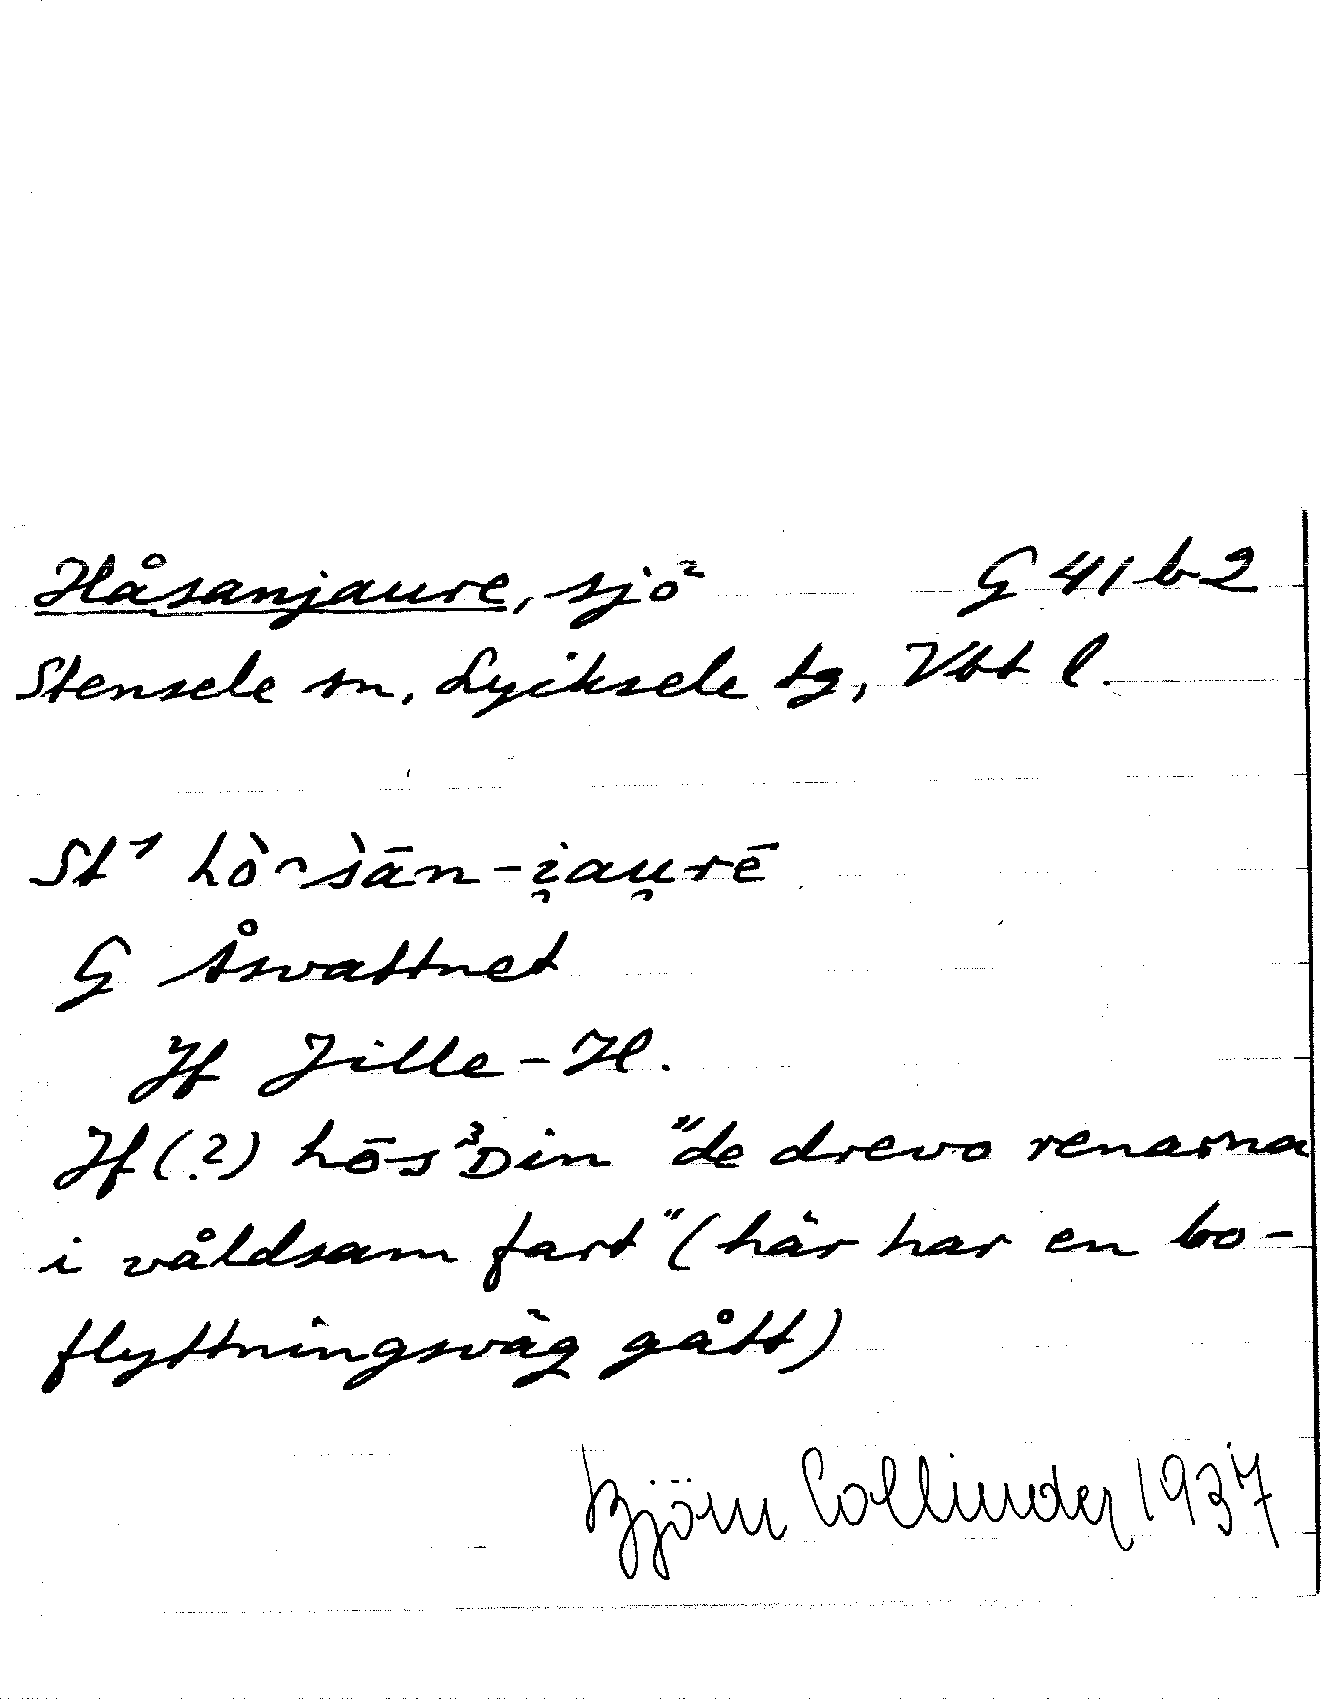 Håsanjaure, sjö G 41 b 2
Stensele sn, Lycksele tg, Vbt l.
St¹ hò̀ᴖsān-i̯au̯rē
G Åsvattnet
Jf Jille-H.
Jf (?) hōs³Din "de drevo renarna
i våldsam fart" (här har en bo-
flyttningsväg gått)
Björn Collinder 1937